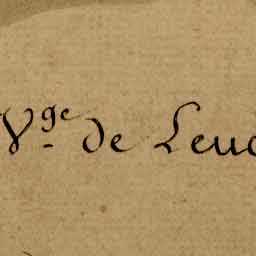 Vge de Leuc